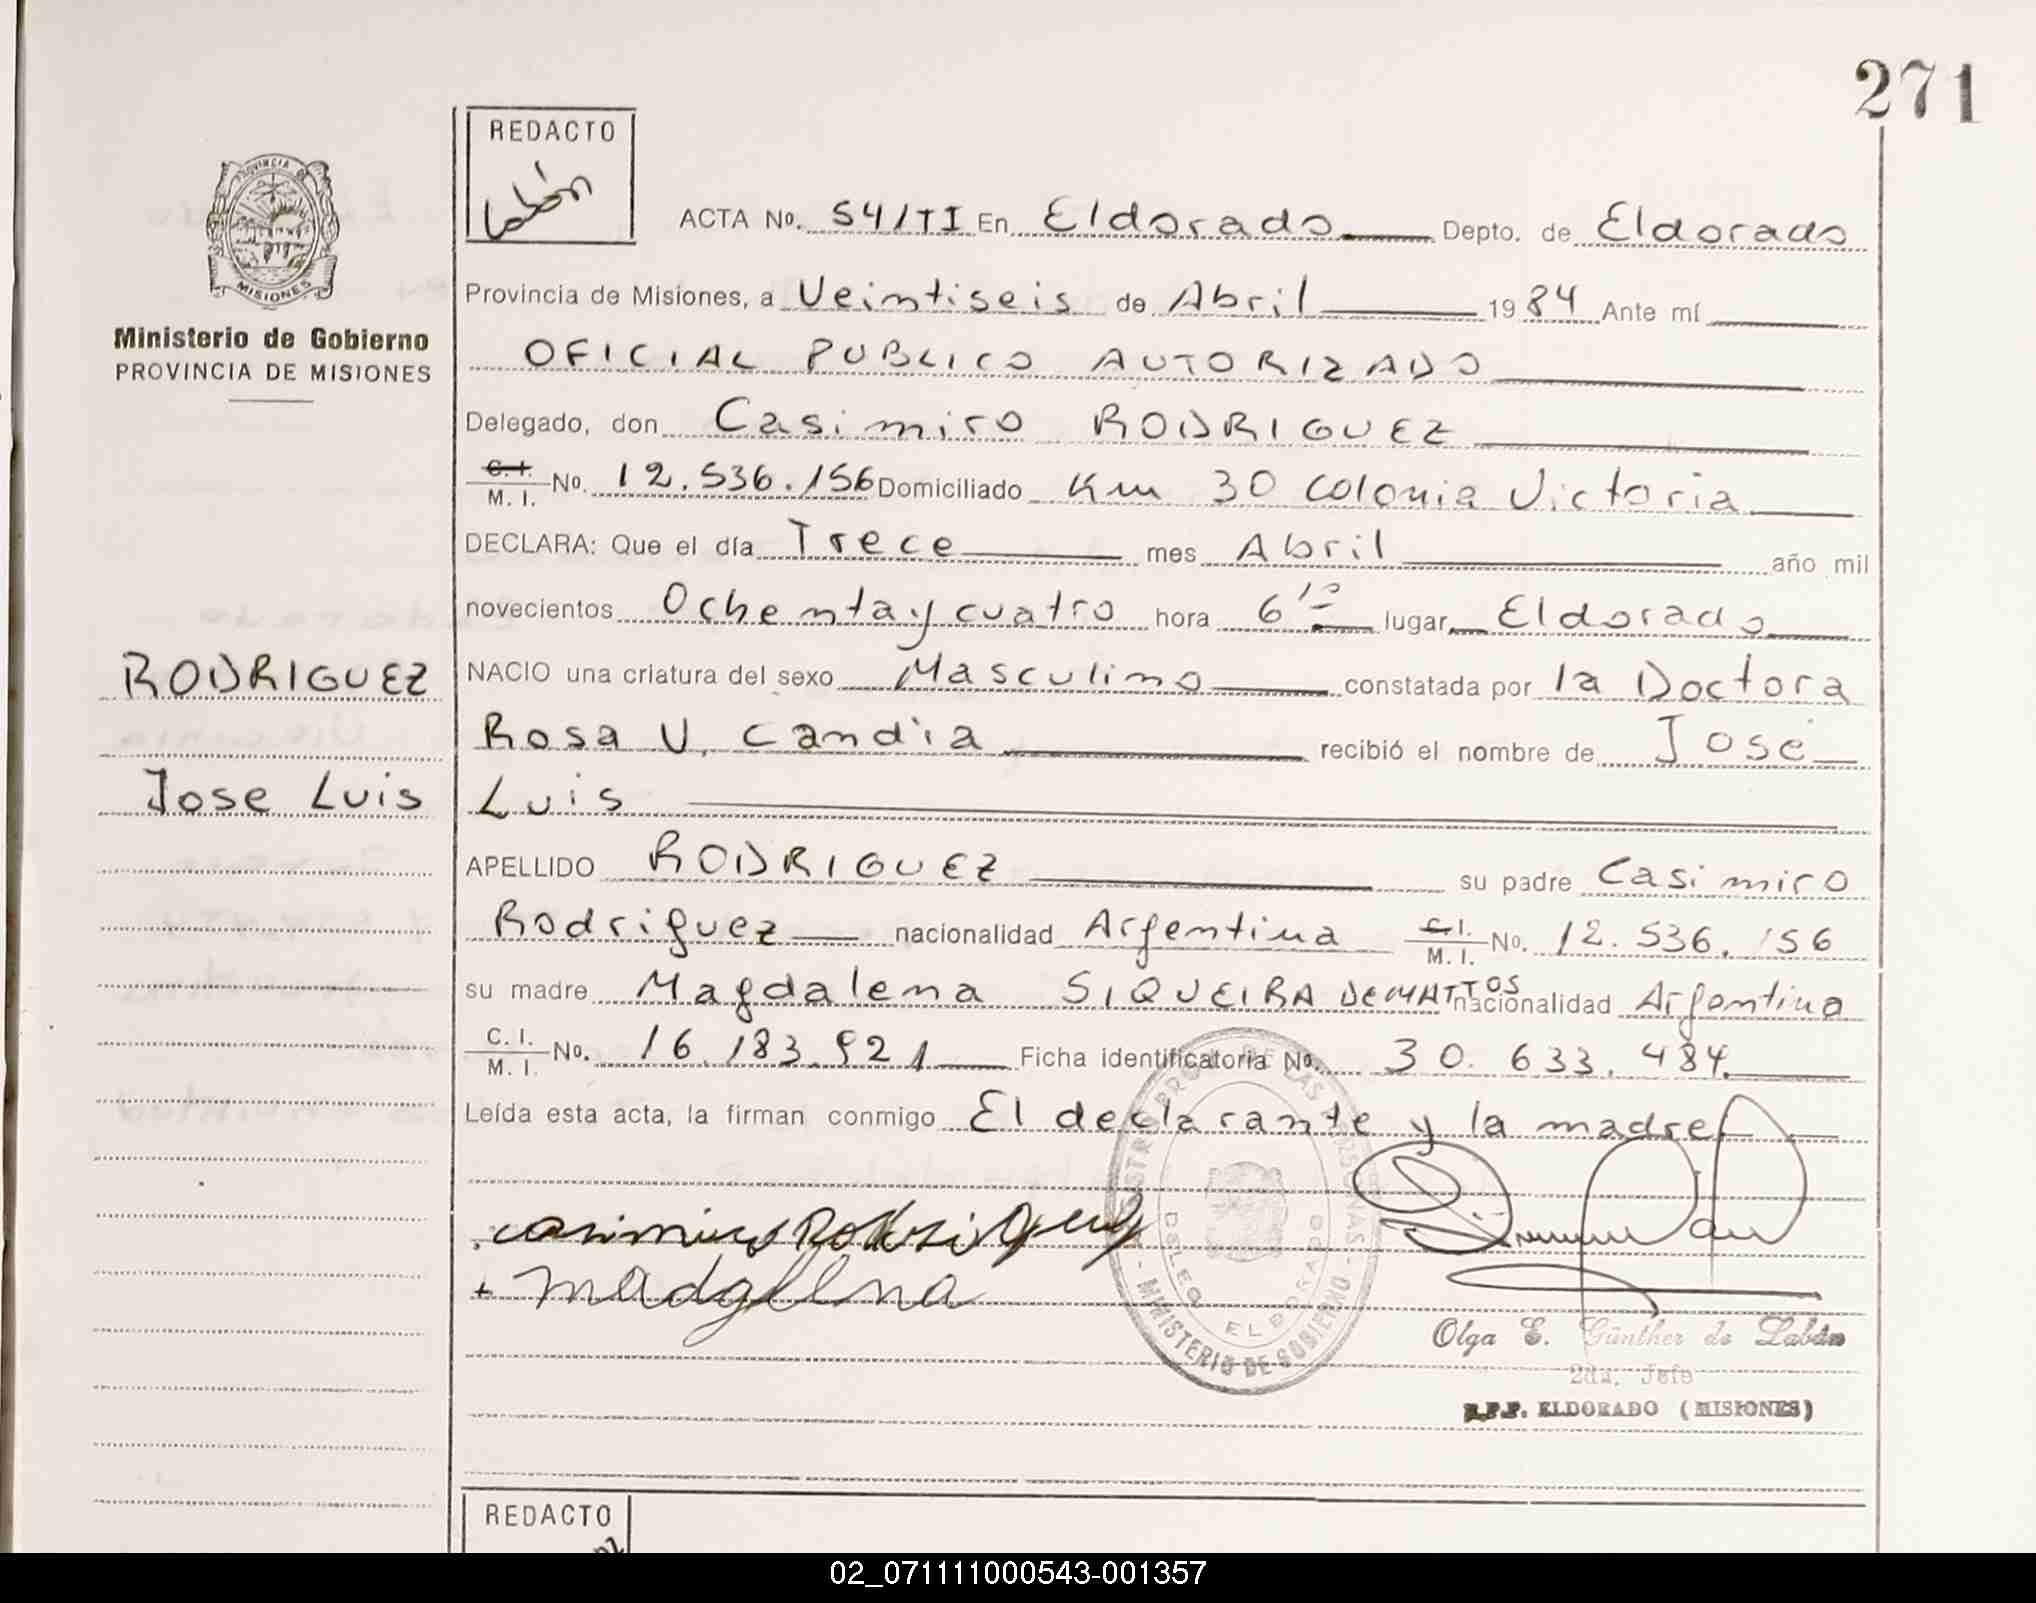 271
REDACTO
Labán
PROVINCIA DE
MISIONES
Ministerio de Gobierno
PROVINCIA DE MISIONES
ACTA No. 54/TI En Eldorado Depto. de Eldorado
Provincia de Misiones, a Veintiseis de Abril 1984 Ante mí
OFICIAL PUBLICO AUTORIZADO
Delegado, don Casimiro RODRIGUEZ
C. I. M. I. No. 12.536.156 Domiciliado Km 30 Colonia Victoria
DECLARA: Que el día Trece mes Abril año mil
novecientos Ochenta y cuatro hora 6 10 lugar Eldorado
RODRIGUEZ
Jose Luis
NACIO una criatura del sexo Masculino constatada por la Doctora
Rosa V. Candia recibió el nombre de José
Luis
APELLIDO RODRIGUEZ su padre Casimiro
Rodriguez nacionalidad Argentina C. I. M. I. No. 12.536.156
su madre Magdalena SIQUEIRA DE MATTOS nacionalidad Argentina
C. I. M. I. No. 16.183.921 Ficha identificatoria No. 30.633.484.
Leída esta acta, la firman conmigo El declarante y la madre
Casimiro Rodriguez
+ madglena
MINISTERIO DE GOBIERNO
DELEG. ELDORADO
Olga E. Günther de Labán
2da. Jefe
R.P.P. ELDORADO (MISIONES)
REDACTO
02_071111000543-001357